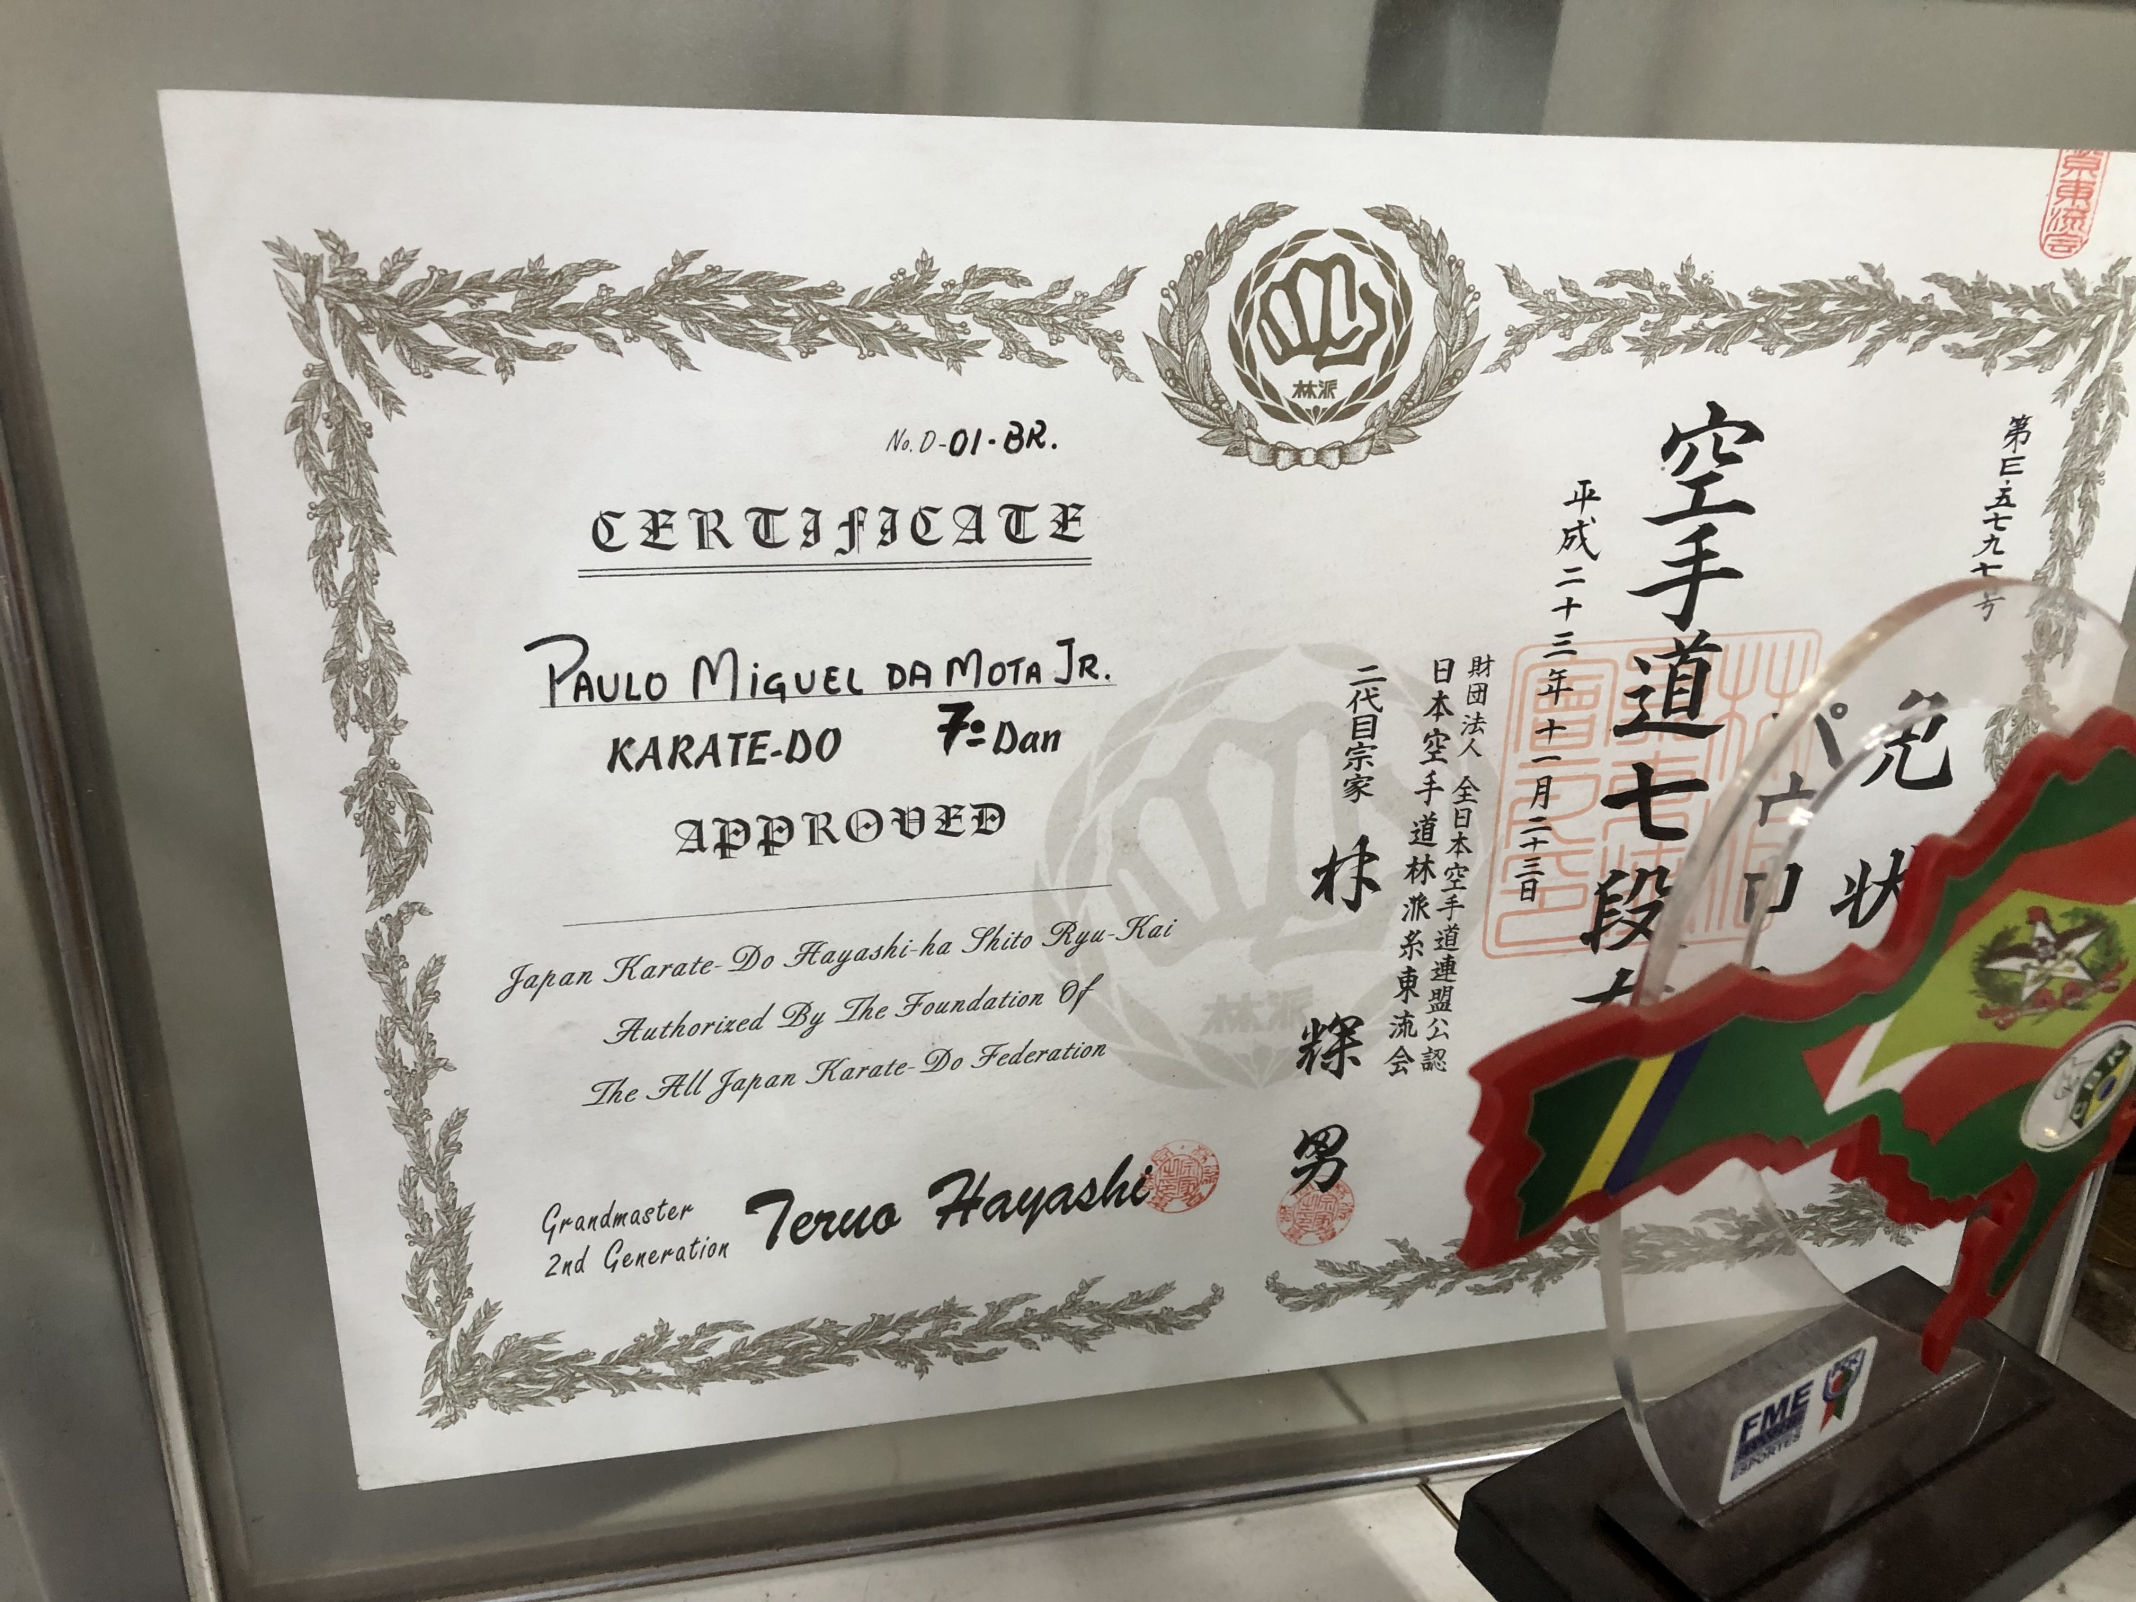 林派
No. D-01-BR.
CERTIFICATE
PAULO MIGUEL DA MOTA JR.
KARATE-DO 7º Dan
APPROVED
Japan Karate-Do Hayashi-ha Shito Ryu-Kai
Authorized By The Foundation Of
The All Japan Karate-Do Federation
Grandmaster
2nd Generation
Teruo Hayashi
免状
空手道七段
平成二十三年十一月二十三日
財団法人 全日本空手道連盟公認
日本空手道林派糸東流会
二代目宗家 林 輝 男
林派
FME
ESPORTES